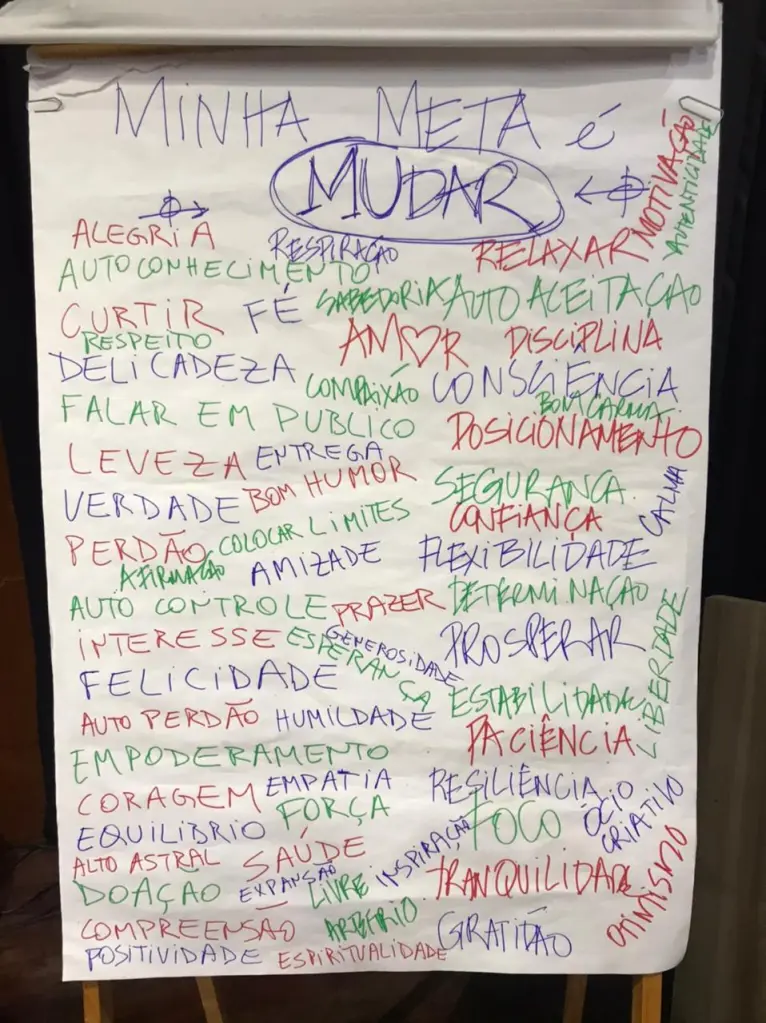 MINHA META é
MUDAR
ALEGRIA RESPIRAÇÃO RELAXAR MOTIVAÇÃO
AUTENTICIDADE
AUTOCONHECIMENTO
CURTIR FÉ SABEDORIA AUTO ACEITAÇÃO
RESPEITO AMOR DISCIPLINA
DELICADEZA COMPAIXÃO CONSCIÊNCIA
FALAR EM PUBLICO BOM CARMA
LEVEZA ENTREGA POSICIONAMENTO
VERDADE BOM HUMOR SEGURANÇA CALMA
PERDÃO COLOCAR LIMITES CONFIANÇA
AFIRMAÇÃO AMIZADE FLEXIBILIDADE
AUTO CONTROLE PRAZER DETERMINAÇÃO
INTERESSE ESPERANÇA GENEROSIDADE PROSPERAR LIBERDADE
FELICIDADE ESTABILIDADE
AUTO PERDÃO HUMILDADE PACIÊNCIA
EMPODERAMENTO
CORAGEM EMPATIA RESILIÊNCIA ÓCIO CRIATIVO
EQUILIBRIO FORÇA FOCO
ALTO ASTRAL SAÚDE INSPIRAÇÃO TRANQUILIDADE OTIMISMO
DOAÇÃO EXPANSÃO LIVRE ARBÉRIO
COMPREENSÃO GRATIDÃO
POSITIVIDADE ESPIRITUALIDADE